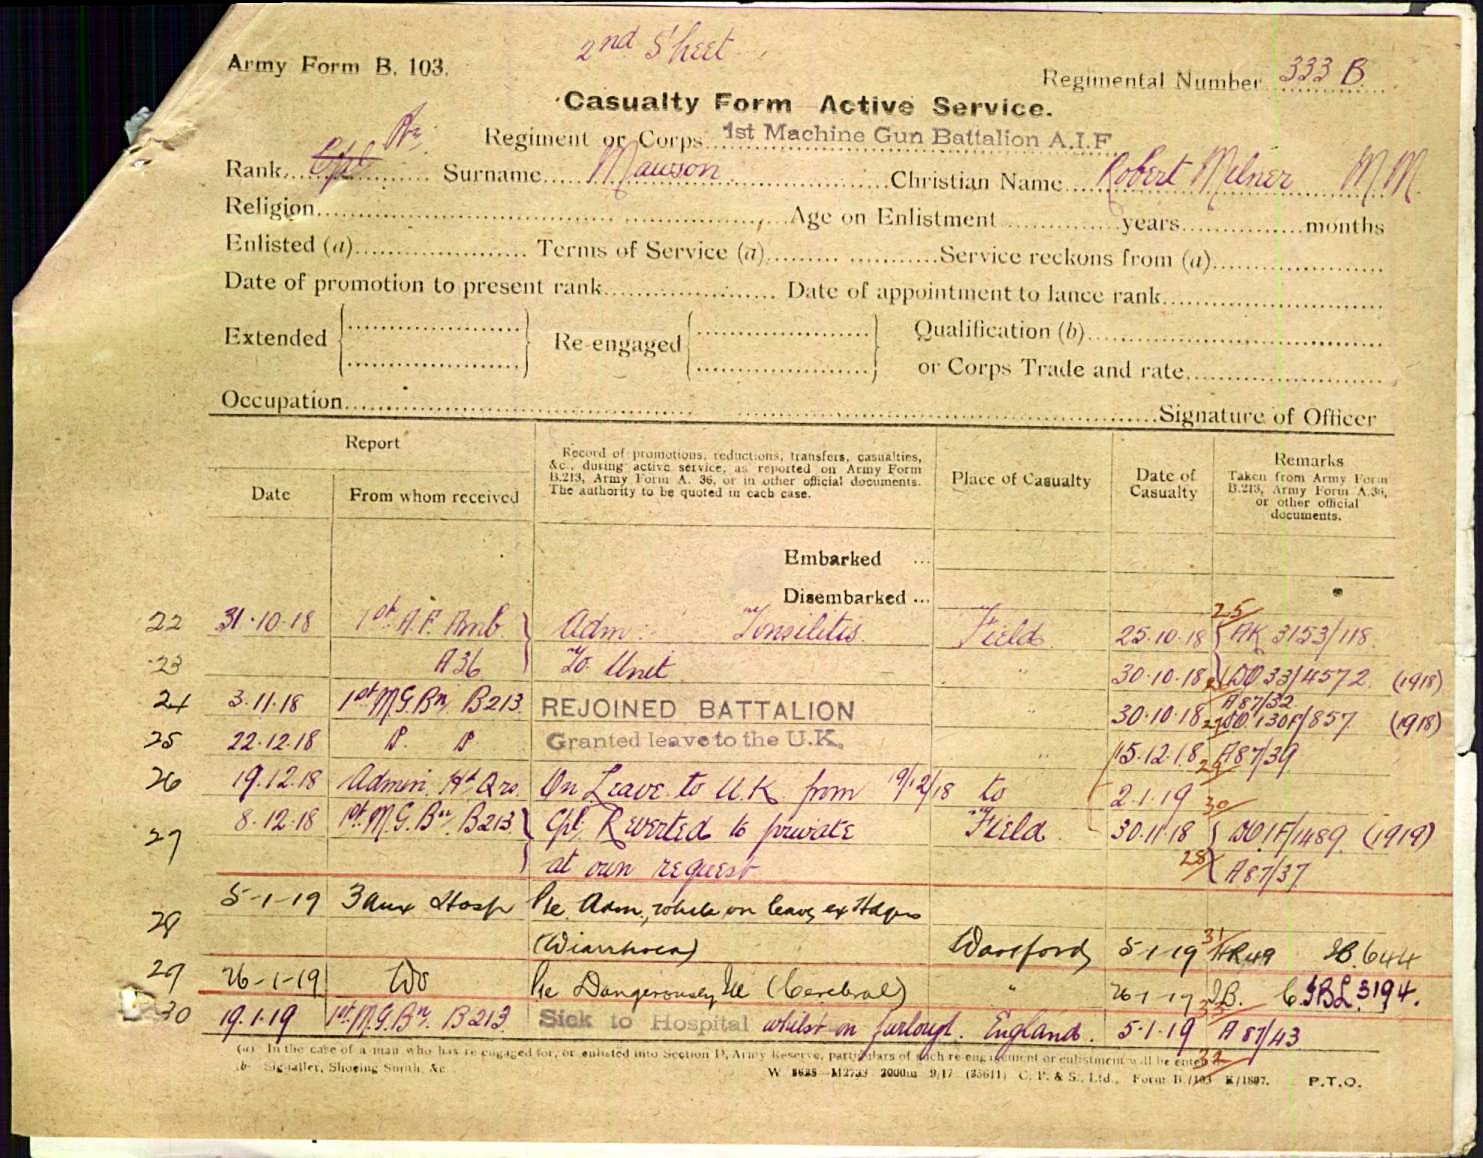 2nd Sheet
Army Form B. 103.
Regimental Number 333 B
Casualty Form Active Service.
Regiment or Corps 1st Machine Gun Battalion A.I.F.
Rank Cpl Surname Mawson Christian Name Robert Milner MM
Religion Age on Enlistment years months
Enlisted (a) Terms of Service (a) Service reckons from (a)
Date of promotion to present rank Date of appointment to lance rank
Extended Re-engaged Qualification (b)
or Corps Trade and rate
Occupation Signature of Officer
Report
Date From whom received
Record of promotions, reductions, transfers, casualties,
&c., during active service, as reported on Army Form
B.213, Army Form A. 36, or in other official documents.
The authority to be quoted in each case.
Place of Casualty
Date of
Casualty
Remarks
Taken from Army Form
B.213, Army Form A.36,
or other official
documents.
Embarked ...
Disembarked ...
25
22 31.10.18 1st A.F. Amb Adm: Tonsilitis Field 25.10.18 AK 3153/118
23 A36 To Unit " 30.10.18 DO 33/4572 (1918)
A87/32
24 3.11.18 1st M.G.Bn. B213 REJOINED BATTALION " 30.10.18 DO 130F/857 (1918)
25 22.12.18 Granted leave to the U.K. " 15.12.18 A87/39
26 19.12.18 Admin. Hd Qrs. On Leave to U.K. from 19/12/18 to 2.1.19 30
27 8.12.18 1st M.G.Bn. B213 Cpl Reverted to private Field 30.11.18 DO 1F/1489 (1919)
at own request 28 A87/37
28 5-1-19 3 Aux Hosp Pte Adm, while on leave, ex Hdqrs
(Diarrhoea) Dartford 5-1-19 31 HR49 IB.644
29 26-1-19 Do Pte Dangerously Ill (Cerebral) " 26-1-19 I.B. 3194.
30 19.1.19 1st M.G.Bn. B213 Sick to Hospital whilst on furlough. England. 5-1-19 A 87/43
(a) In the case of a man who has re-engaged for, or enlisted into Section D, Army Reserve, particulars of such re-engagement or enlistment will be entered
32
(b) Signaller, Shoeing Smith, &c.
W 8625 M2733 2000m 9/17 (35611) C. P. & S., Ltd., Form B/103 E/1807. P.T.O.